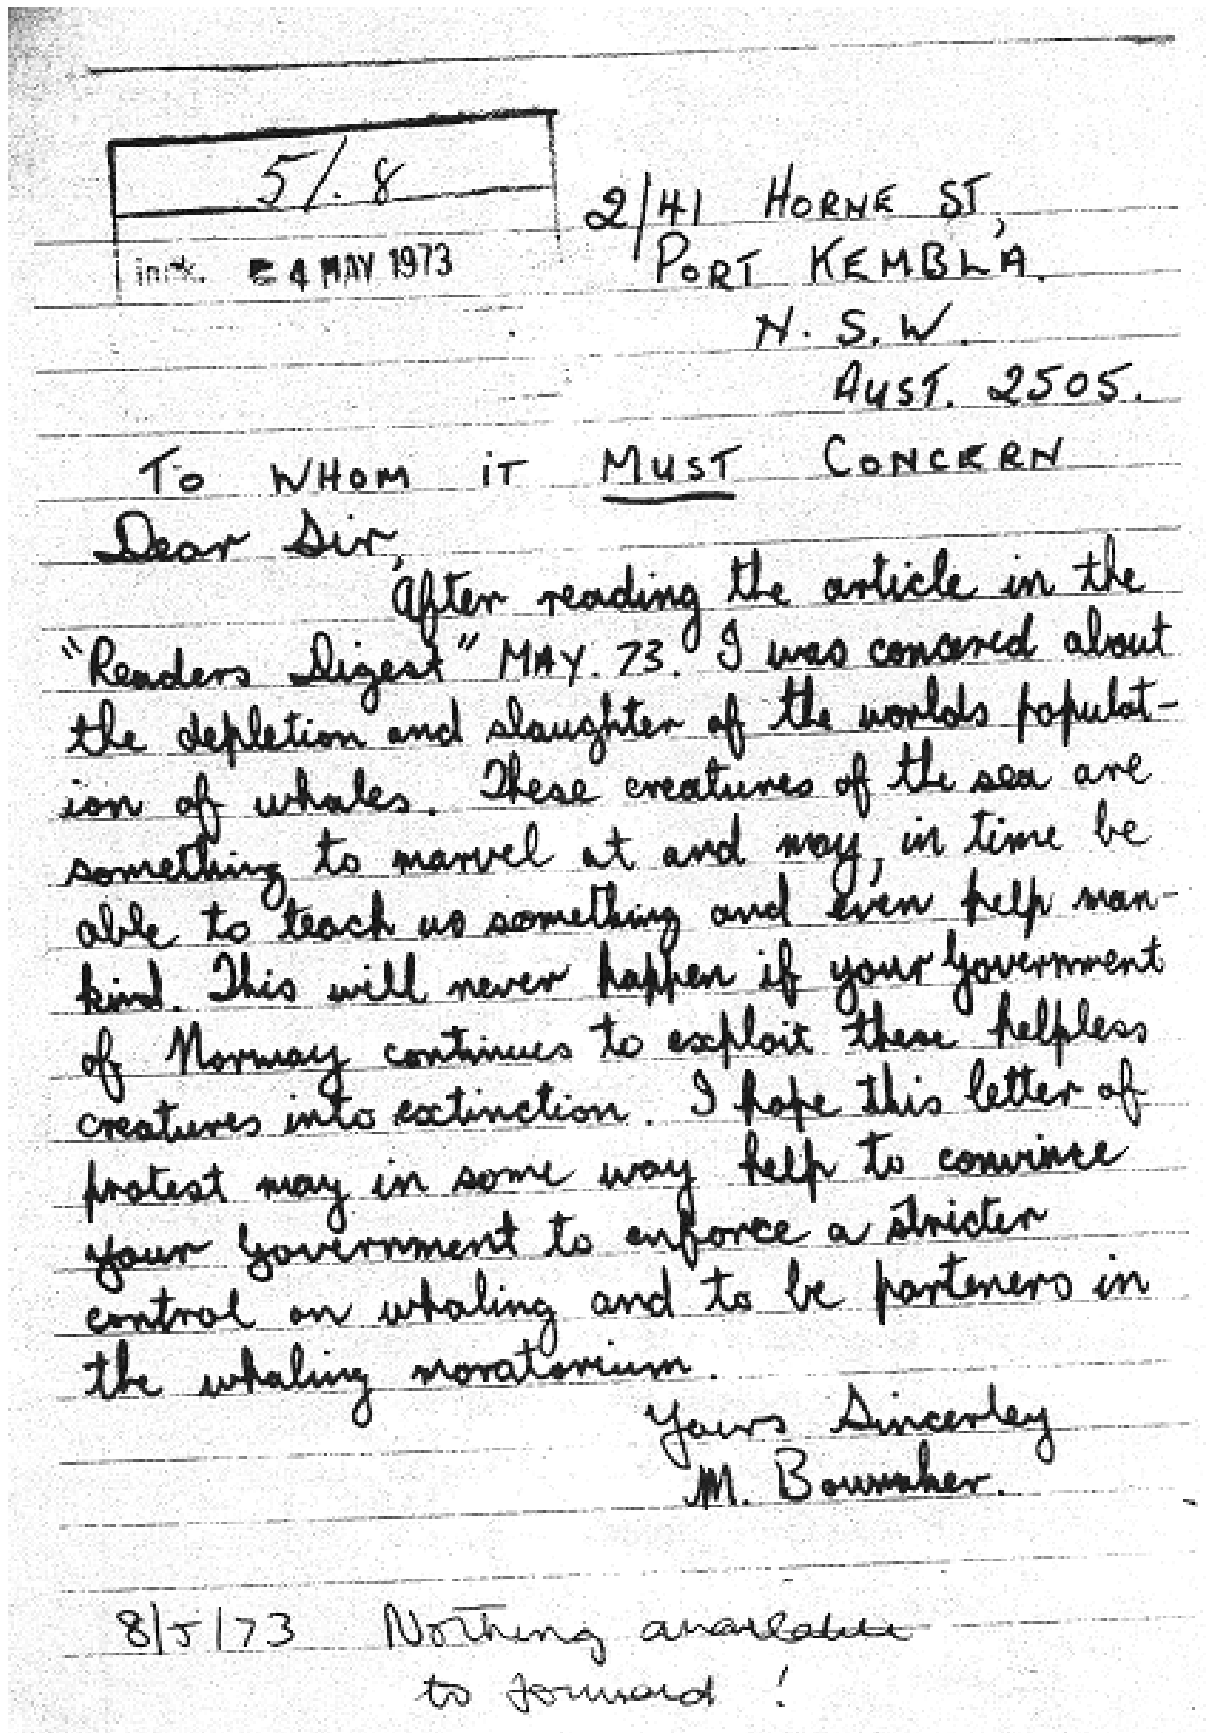 5/.8
2/41 HORNE ST,
innk. 4 MAY 1973
PORT KEMBLA.
N.S.W.
AUST. 2505.
TO WHOM IT MUST CONCERN
Dear Sir,
After reading the article in the
"Readers Digest" MAY. 73. I was concered about
the depletion and slaughter of the worlds populat-
ion of whales. These creatures of the sea are
something to marvel at and may, in time be
able to teach us something and even help man-
kind. This will never happen if your Government
of Norway continues to exploit these helpless
creatures into extinction. I hope this letter of
protest may in some way help to convince
your Government to enforce a stricter
control on whaling and to be parteners in
the whaling moratorium.
Yours Sincerley
M.
8/5/73 Nothing available
to forward!